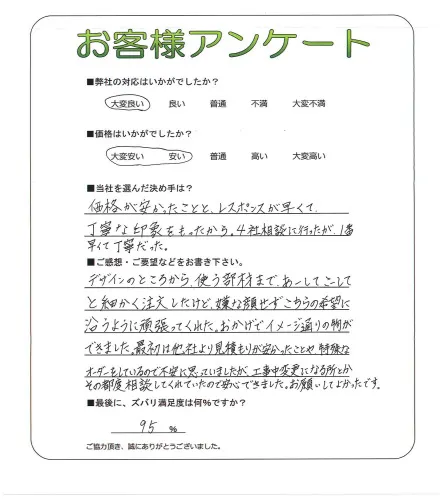 お客様アンケート
■弊社の対応はいかがでしたか？
大変良い 良い 普通 不満 大変不満
■価格はいかがでしたか？
大変安い 安い 普通 高い 大変高い
■当社を選んだ決め手は？
価格が安かったことと、レスポンスが早くて、
丁寧な印象をもったから。4社相談に行ったが、1番
早くて丁寧だった。
■ご感想・ご要望などをお書き下さい。
デザインのところから、使う部材まで、あーしてこーして
と細かく注文したけど、嫌な顔せずこちらの希望に
沿うように頑張ってくれた。おかげでイメージ通りの物が
できました。最初は他社より見積もりが安かったことや、特殊な
オーダーをしているので不安に思っていましたが、工事中変更になる所とか
その都度相談してくれていたので安心できました。お願いしてよかったです。
■最後に、ズバリ満足度は何%ですか？
95 %
ご協力頂き、誠にありがとうございました。